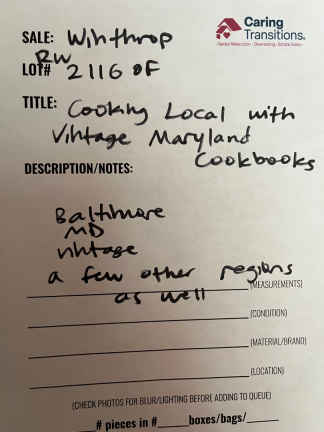 Caring
Transitions®
Senior Relocation • Downsizing • Estate Sales
SALE: Winthrop
RW
LOT# 2116 OF
TITLE: Cooking Local with
Vintage Maryland
Cookbooks
DESCRIPTION/NOTES:
Baltimore
MD
vintage
a few other regions
(MEASUREMENTS)
as well
(CONDITION)
(MATERIAL/BRAND)
(LOCATION)
(CHECK PHOTOS FOR BLUR/LIGHTING BEFORE ADDING TO QUEUE)
# pieces in #_____boxes/bags/_____